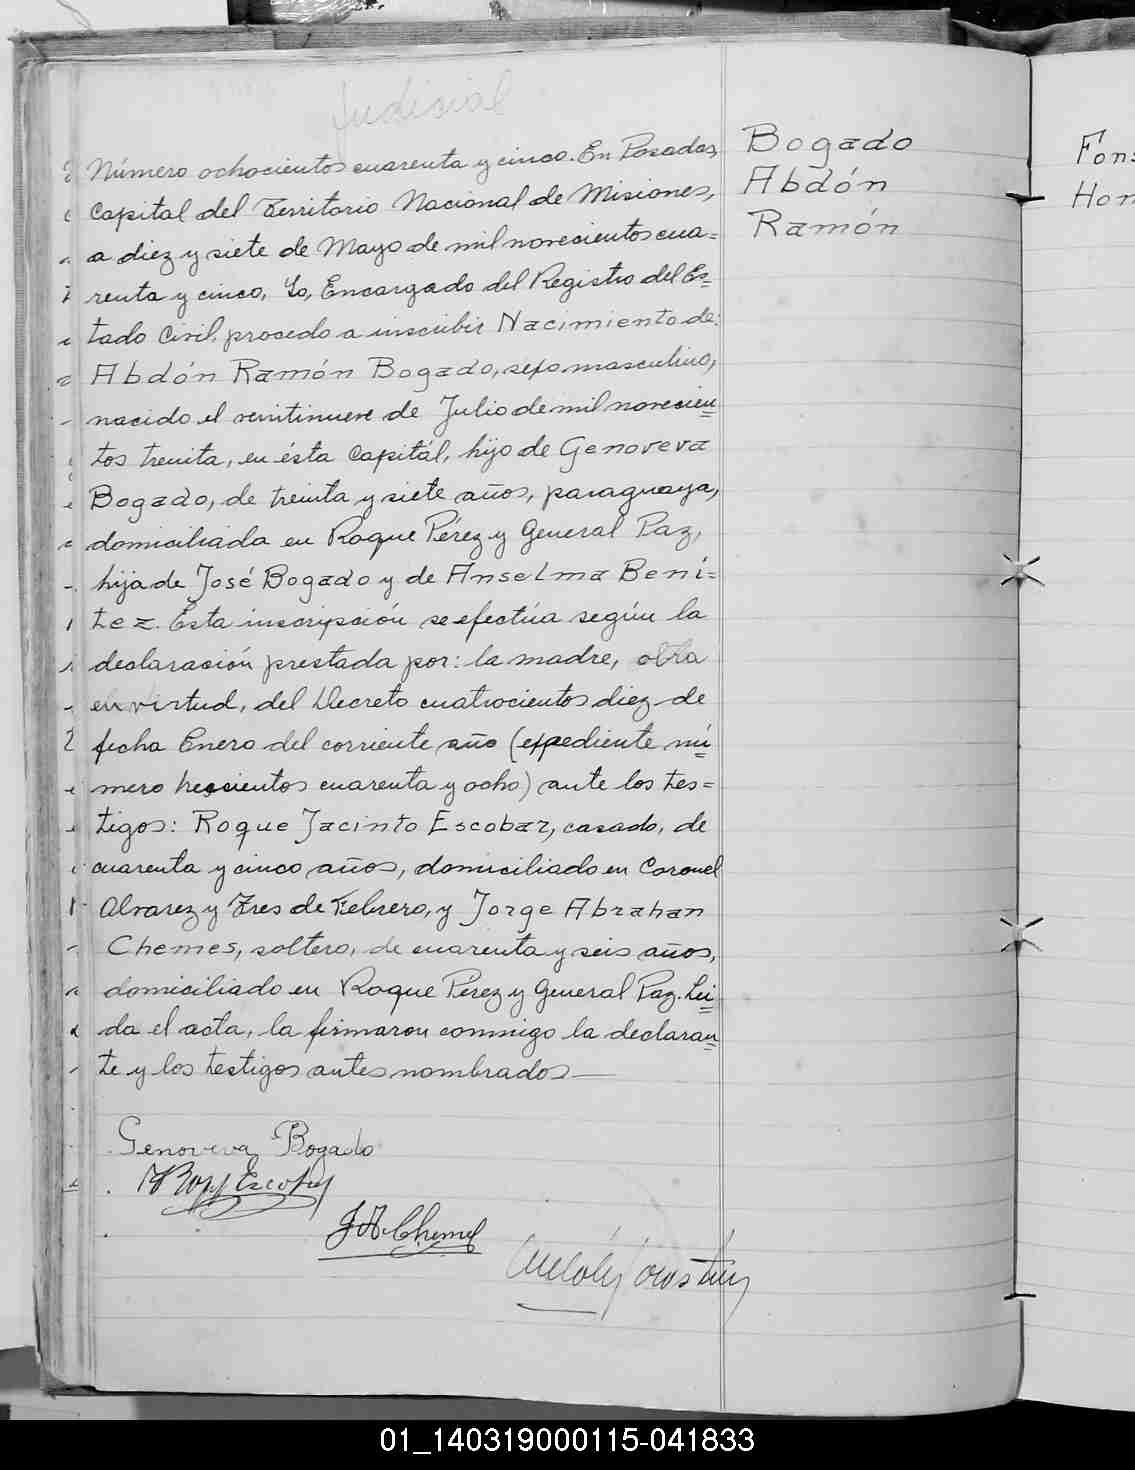 Judicial
Número ochocientos cuarenta y cinco. En Posadas,
Capital del Territorio Nacional de Misiones,
a diez y siete de Mayo de mil novecientos cua=
renta y cinco, Yo, Encargado del Registro del Es=
tado Civil, procedo a inscribir Nacimiento de:
Abdón Ramón Bogado, sexo masculino,
nacido el veintinueve de Julio de mil novecien=
tos treinta, en ésta Capitál, hijo de Genoveva
Bogado, de treinta y siete años, paraguaya,
domiciliada en Roque Pérez y General Paz,
hija de José Bogado y de Anselma Bení=
tez. Esta inscripción se efectúa según la
declaración prestada por: la madre, obra
en virtud, del Decreto cuatrocientos diez de
fecha Enero del corriente año (expediente nú=
mero trescientos cuarenta y ocho) ante los tes=
tigos: Roque Jacinto Escobar, casado, de
cuarenta y cinco años, domiciliado en Coronel
Alvarez y Tres de Febrero, y Jorge Abrahan
Chemes, soltero, de cuarenta y seis años,
domiciliado en Roque Pérez y General Paz. Leí=
da el acta, la firmaron conmigo la declaran=
te y los testigos antes nombrados
Genoveva Bogado
Escobar
J A Chemes
Bogado
Abdón
Ramón
Fons
Hon
01_140319000115-041833